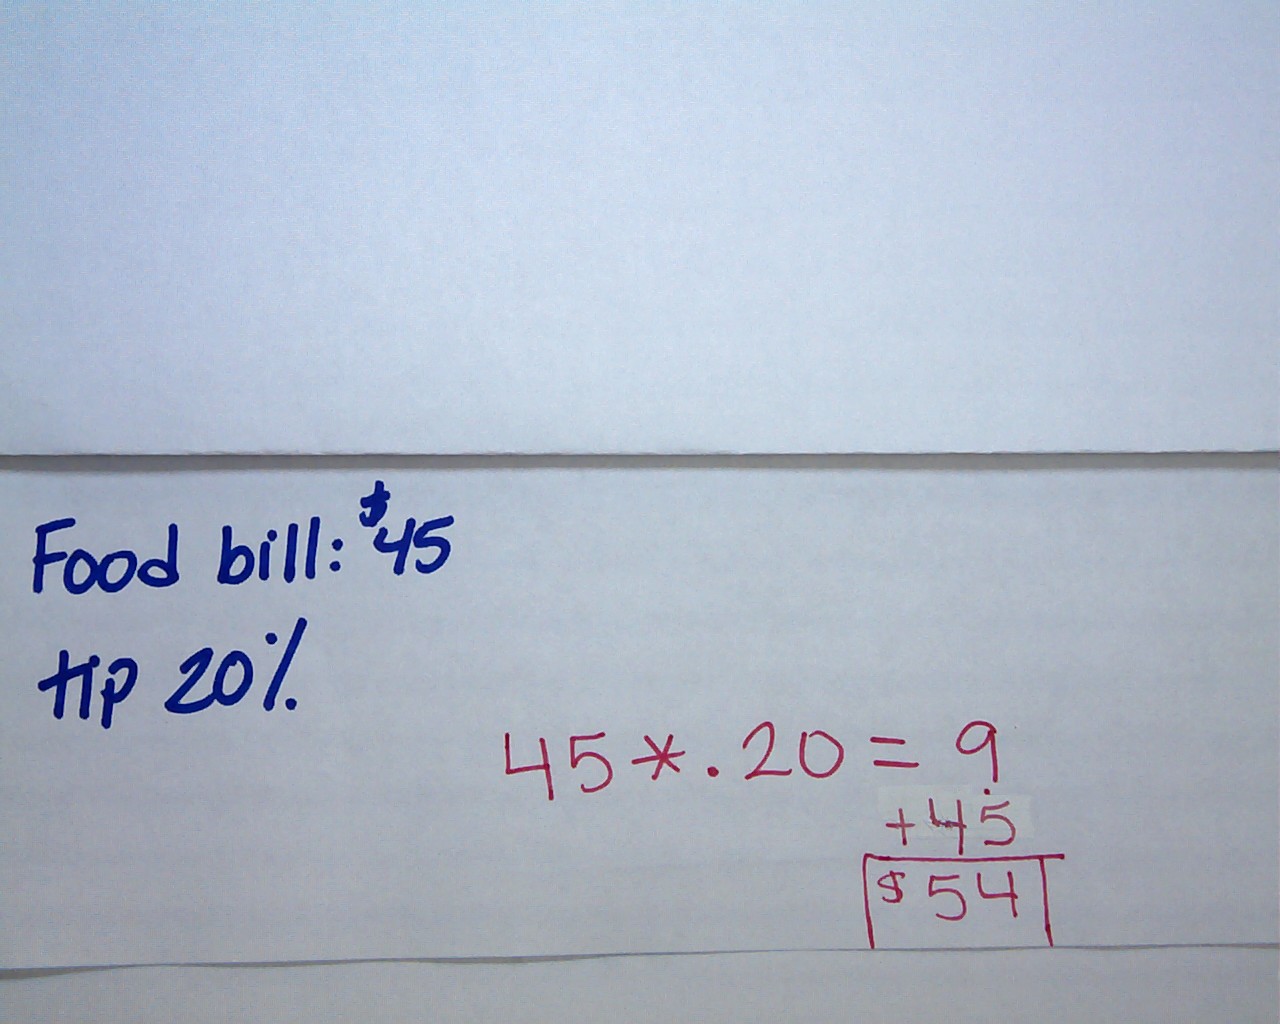 Food bill: $45
tip 20%
45 * .20 = 9
+ 45
$54